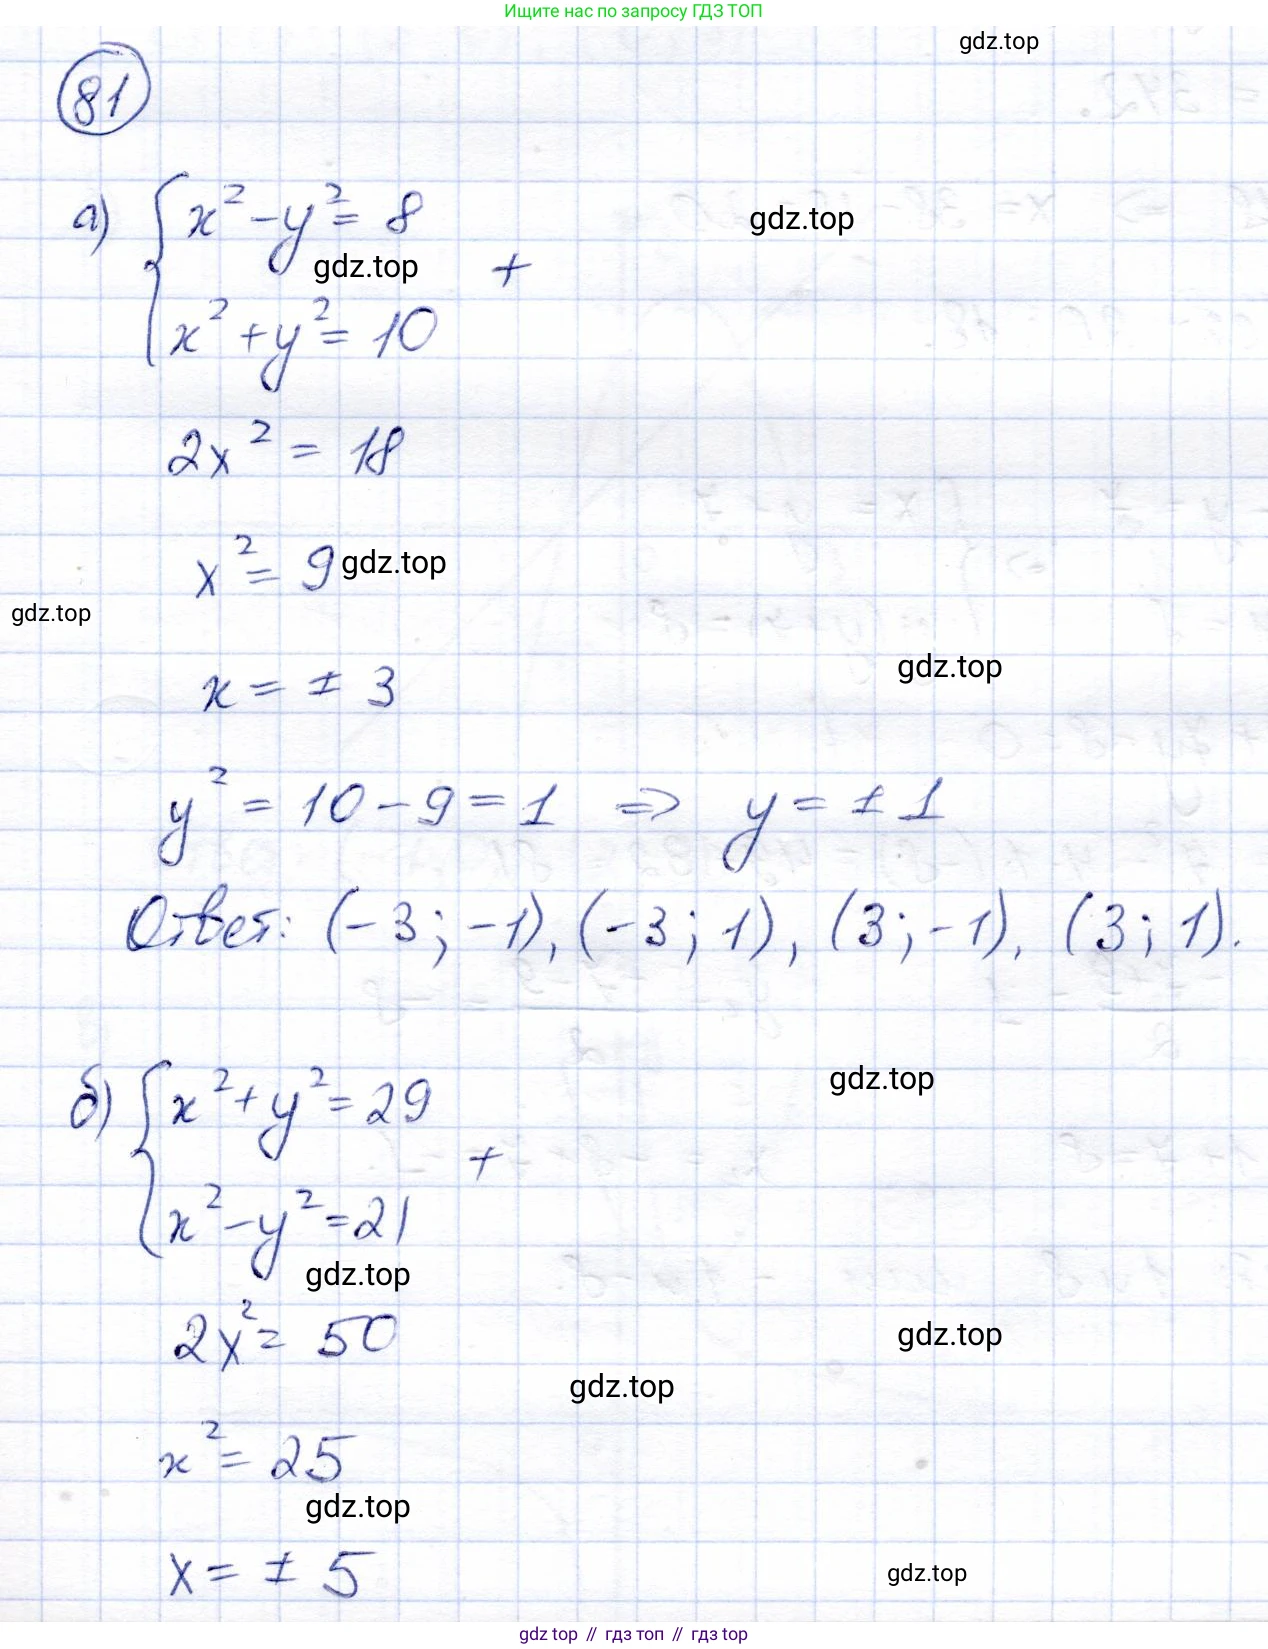 Ищите нас по запросу ГДЗ ТОП
gdz.top
81
а) { x² - y² = 8
gdz.top
gdz.top
+
x² + y² = 10
2x² = 18
x² = 9
gdz.top
gdz.top
gdz.top
x = ± 3
y² = 10 - 9 = 1 => y = ± 1
Ответ: (-3; -1), (-3; 1), (3; -1), (3; 1).
б) { x² + y² = 29
gdz.top
+
x² - y² = 21
gdz.top
2x² = 50
gdz.top
gdz.top
x² = 25
gdz.top
x = ± 5
gdz.top
gdz top // гдз топ // гдз top